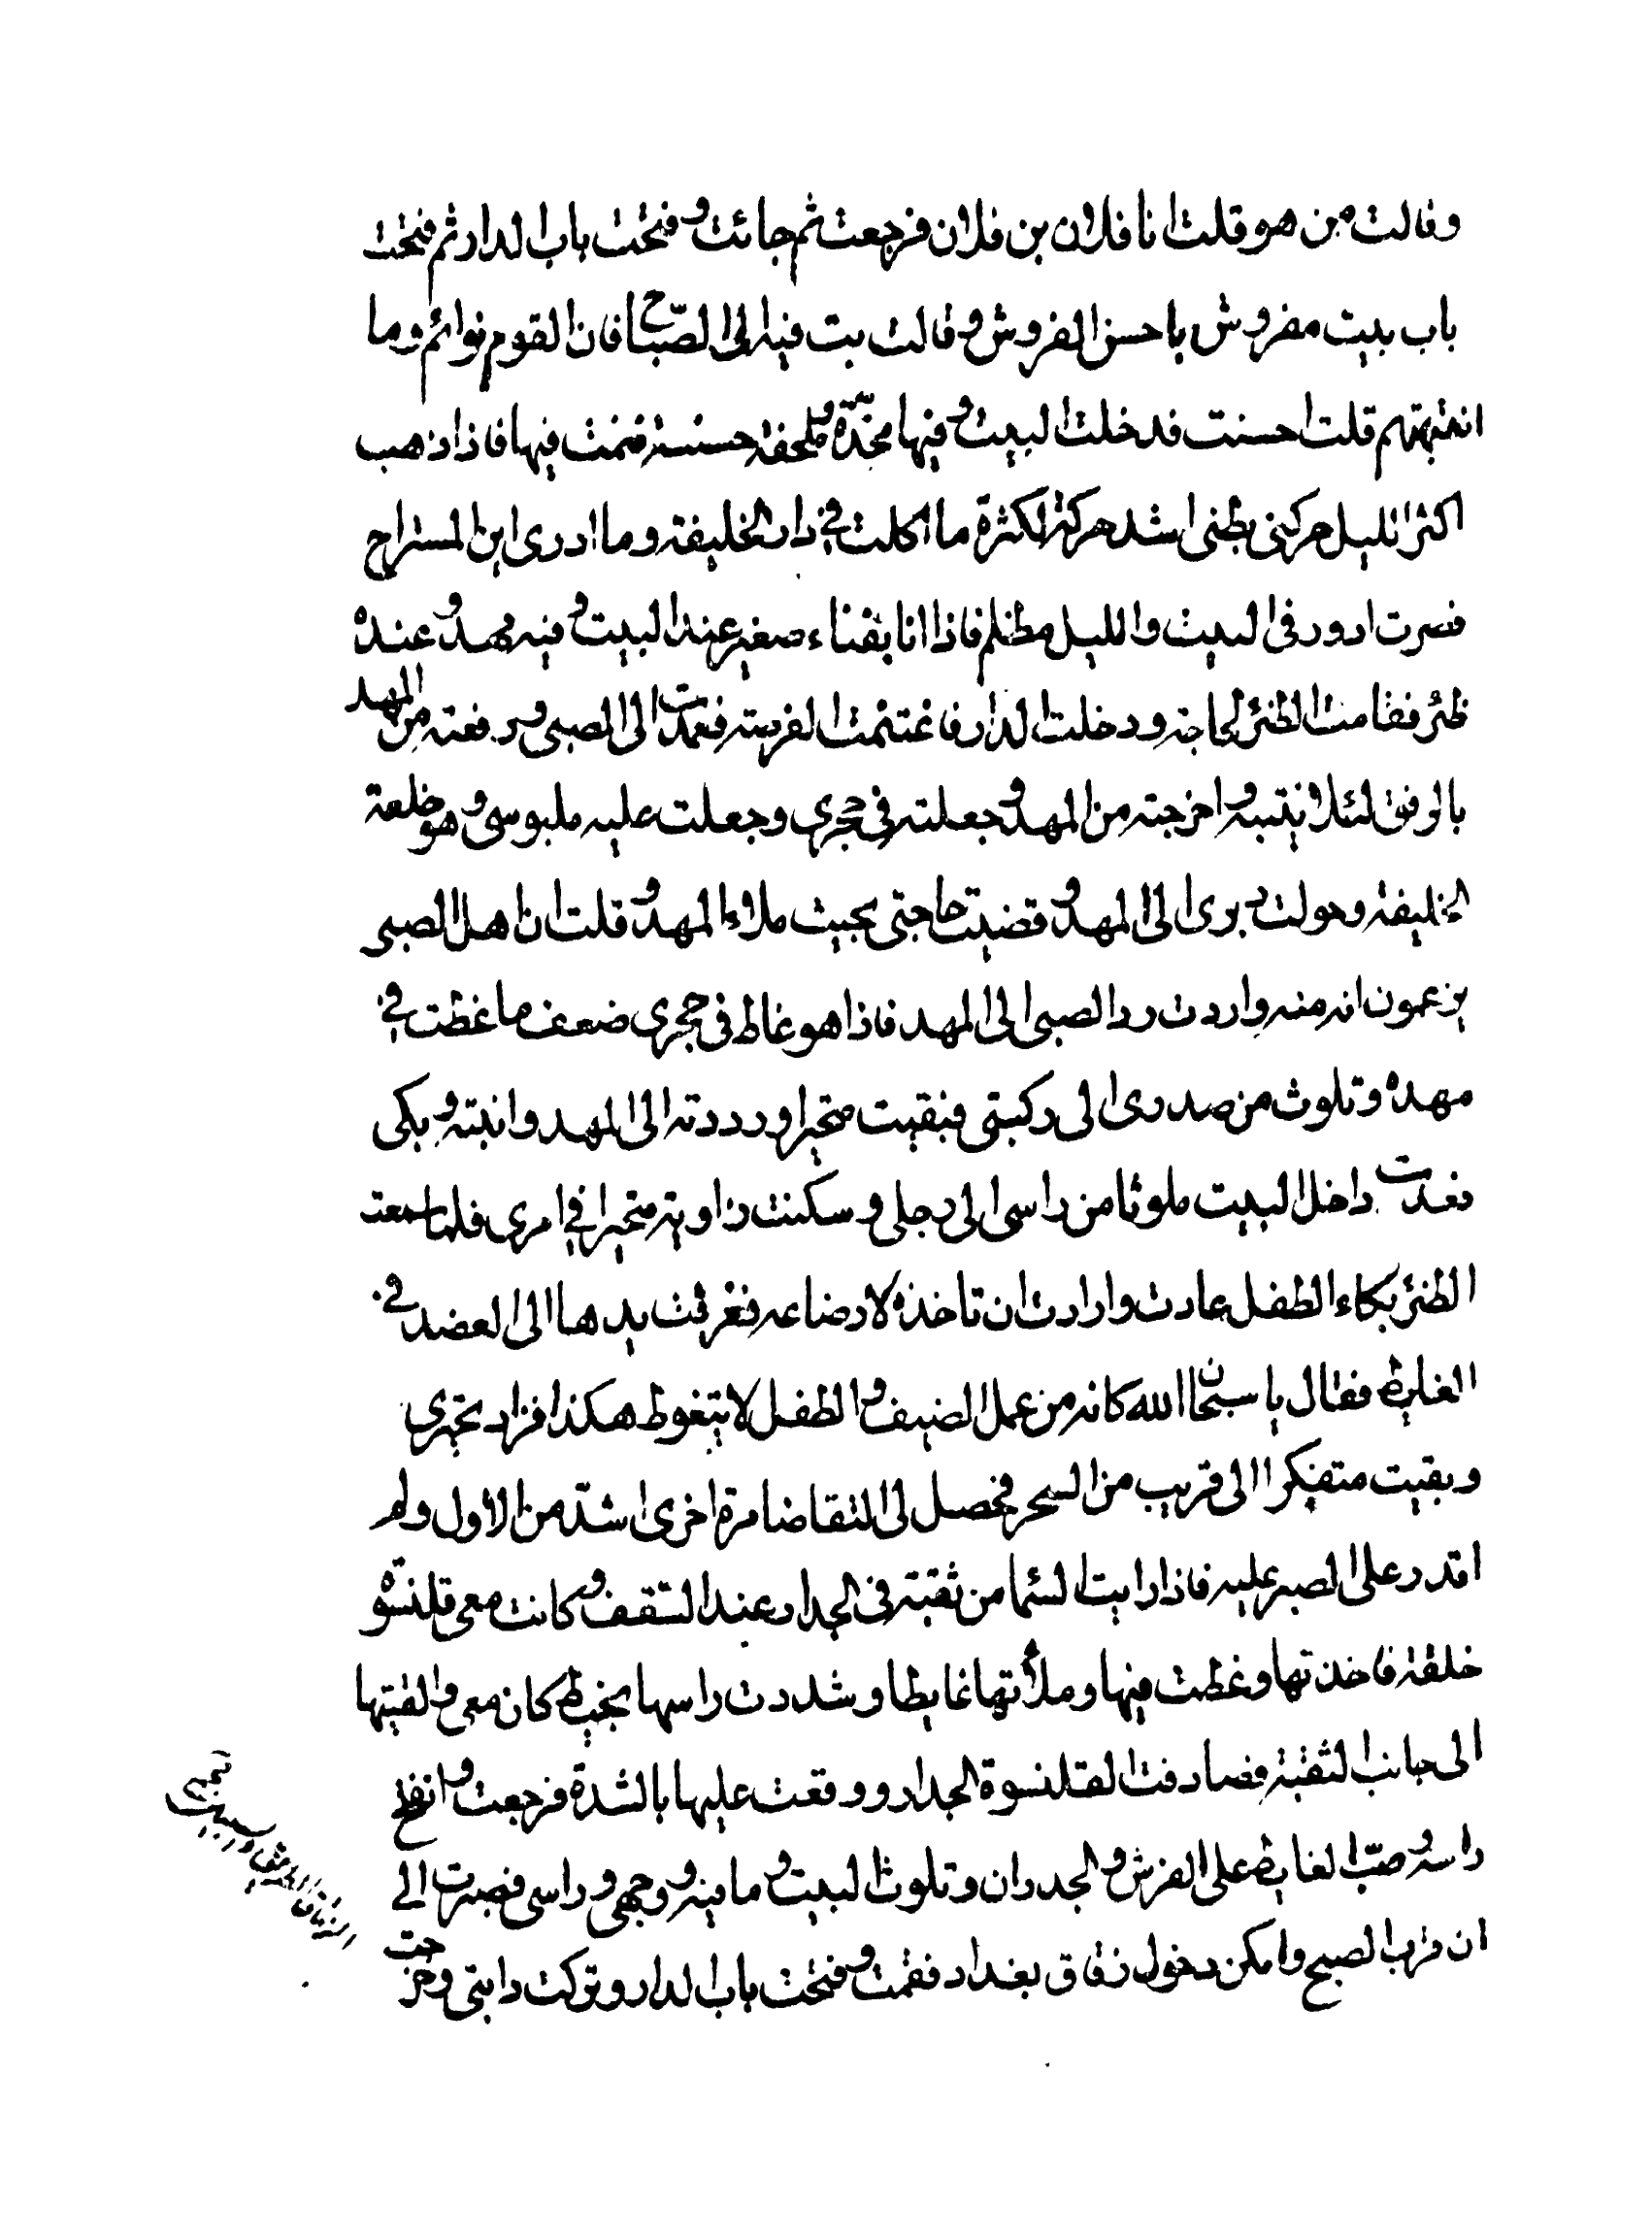 وقالت من هو قلت انا فلان بن فلان فرجعت ثم جائت و فتحت باب الدار ثم فتحت
باب بيت مفروش باحسن الفروش و قالت بت فيه الى الصّباح فان القوم نوائم وما
انتبهتهم قلت احسنت فدخلت البيت و فيها مخدّة و ملحفة حسنة فنمت فيها فاذا ذهب
اكثر الليل حركنى بطنى اشد حركة لكثرة ما اكلت في دار الخليفة وما ادرى اين المستراح
فصرت ادور فى البيت والليل مظلم فاذا انا بفناء صغير عند البيت و فيه مهد و عنده
ظئر فقامت الظئر لحاجة ودخلت الدار فاغتنمت الفرصة فعمدت الى الصبى و رفعته من المهد
بالرفق لئلا ينتبه و اخرجته من المهد و جعلته فى حجرى وجعلت عليه ملبوسى و هو خلعة
الخليفة وحولت دبرى الى المهد و قضيت حاجتى بحيث ملاء المهد و قلت ان اهل الصبى
يزعمون انه منه واردت رد الصبى الى المهد فاذا هو غاط فى حجرى ضعف ما غطت في
مهده وتلوث من صدرى الى ركبتى فبقيت متحيرا ورددته الى المهد وانبته و بكى
فعدت داخل البيت ملوثا من راسى الى رجلى و سكنت زاوية متحيرا في امرى فلما سمعت
الظئر بكاء الطفل عادت وارادت ان تاخذه لارضاعه فغرقت يدها الى العضد في
الغايط فقال يا سبحان الله كانه من عمل الضيف و الطفل لا يتغوط هكذا فزاد تحيرى
وبقيت متفكرا الى قريب من السحر فحصل لى التقاضا مرة اخرى اشدّ من الاول ولم
اقدر على الصبر عليه فاذا رايت السما من ثقبة فى الجدار عند السّقف و كانت معى قلنسوة
خلقة فاخذتها وغطت فيها وملأتها غايطا وشددت راسها بخيط كان معى و القيتها
الى جانب الثقبة فصادفت القلنسوة الجدار ووقعت عليها بالشدة فرجعت و انفتح
راسه و صبّ الغايط على الفرش و الجدران وتلوث البيت و ما فيه و وجهى و راسى فصبرت الى
ان قرب الصبح وامكن دخول زقاق بغداد فقمت و فتحت باب الدار و تركت دابتى وخرجت